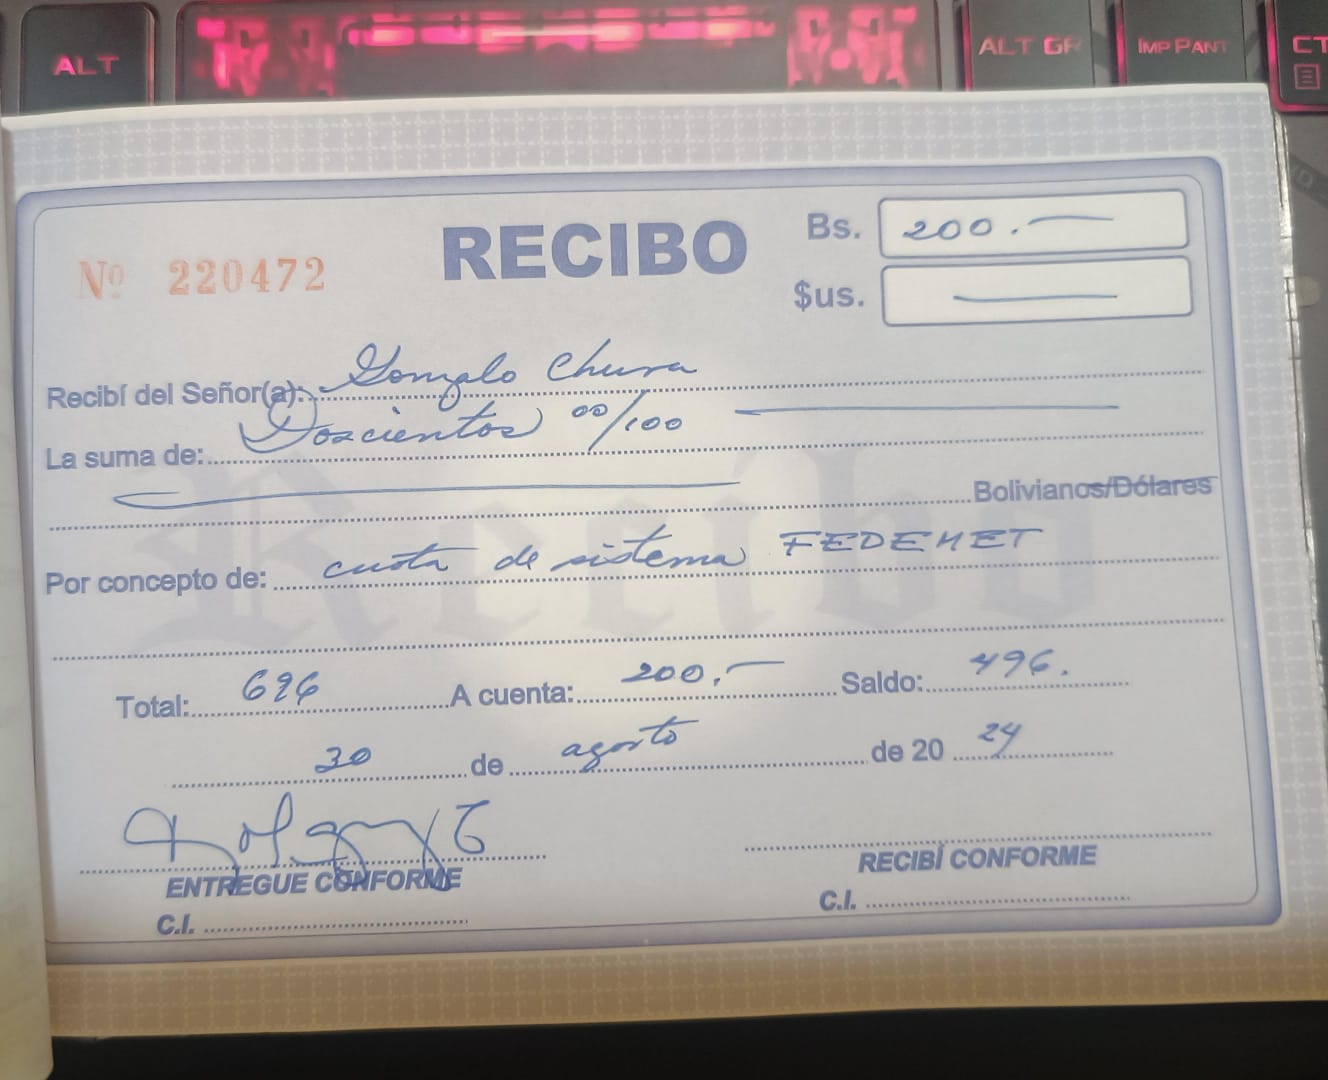 ALT
ALT GR
IMP PANT
CT
Nº 220472
RECIBO
Bs. 200.-
$us. -
Recibí del Señor(a): Gonzalo Chura
La suma de: Doscientos 00/100
Bolivianos/Dólares
Por concepto de: cuota de sistema FEDEMET
Total: 696 A cuenta: 200.- Saldo: 496.
30 de agosto de 20 24
ENTREGUE CONFORME
RECIBÍ CONFORME
C.I.
C.I.